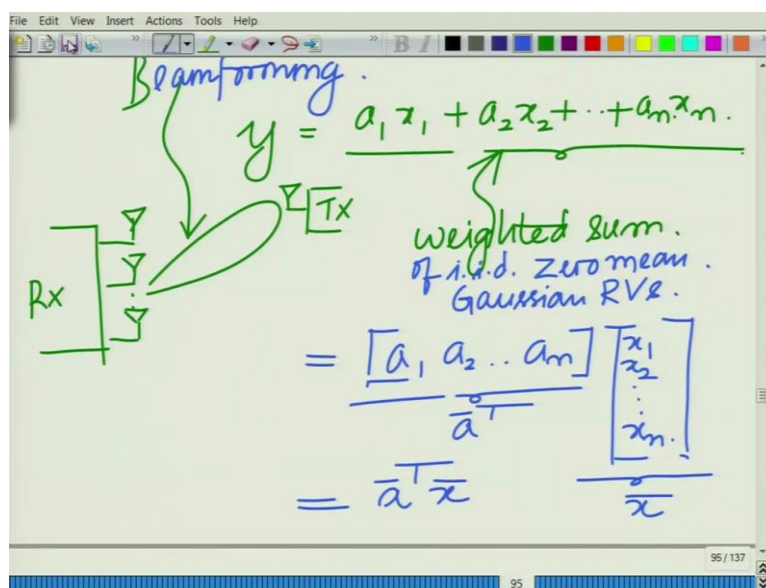 File Edit View Insert Actions Tools Help
B I
Beamforming.
y = a₁x₁ + a₂x₂+··+aₙxₙ.
Tx
weighted sum.
of i.i.d. zero mean.
Gaussian RVs.
Rx
= [a₁ a₂ .. aₙ] [x₁ x₂ ⋮ xₙ.]
āᵀ
= āᵀ x̄
x̄
95/137
95